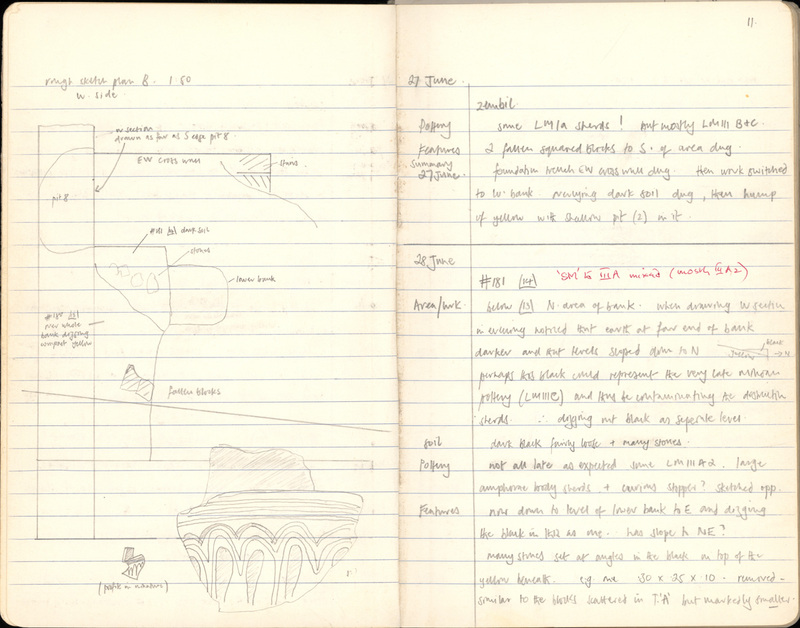 rough sketch plan B. 1:50
W. side
W section
drawn as far as S edge pit 8.
EW cross wall
stones
pit 8
#181 [14] dark soil
stones
lower bank
#180 [13]
over whole
bank digging
compact yellow
fallen blocks
(profile in miniature)
11.
27 June.
zembil
Pottery some LM1a sherds! but mostly LMIII B+C.
Features 2 fallen squared blocks to S. of area dug.
Summary
27 June. foundation trench EW cross wall dug. then work switched
to W. bank. dark soil dug, then hump
of yellow with shallow pit (2) in it.
28 June
#181 [14] 'SM' to III A mixed (mostly III A2)
Area/work. below [13] N. area of bank. when drawing W section
in evening noticed that earth at far end of bank
darker and that levels sloped down to N
black
yellow
→ N
perhaps this black could represent the very late minoan
pottery (LMIIIC) and thus be contaminating the destruction
sherds. ∴ digging out black as seperate level.
Soil dark black fairly loose + many stones.
Pottery not all late as expected some LMIIIA2. large
amphorae body sherds + curious stopper? sketched opp.
Features now down to level of lower bank to E and digging
the black in this as one. has slope to NE?
many stones set at angles in the black on top of the
yellow beneath. eg one 30 x 25 x 10. removed -
similar to the blocks scattered in T.'A' but markedly smaller.